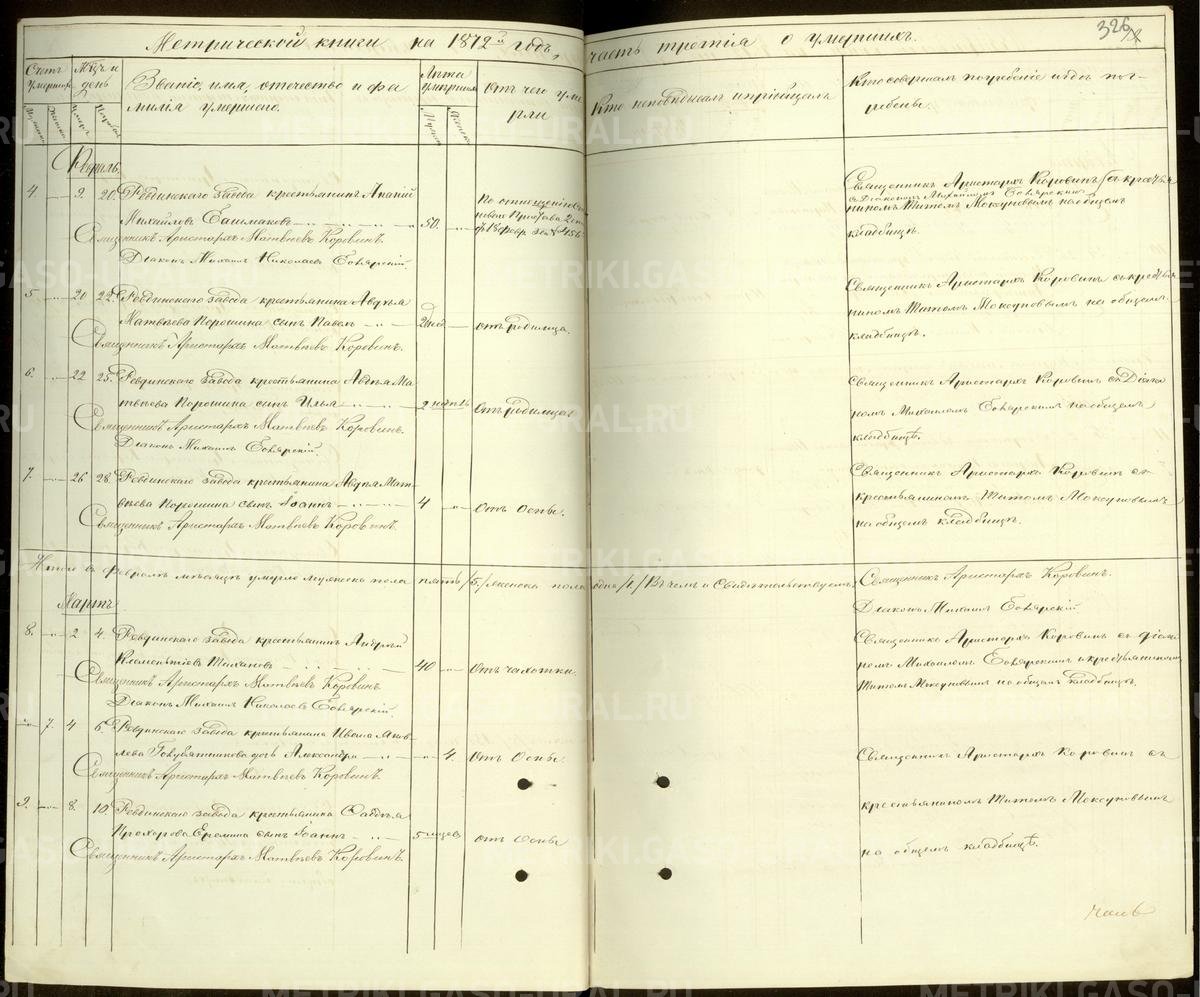 Метрической книги на 1872й годъ, часть третія о умершихъ.
326
Счетъ умершихъ
Мужска
Женска
Мѣсяцъ и день
Смерти
Погребенія
Званіе, имя, отечество и фамилія умершаго.
Лѣта умершаго
Мужска
Женска
Отъ чего умерли
Кто исповѣдывалъ и пріобщалъ
Кто совершалъ погребеніе и гдѣ погребены.
Февраль.
4 9. 20. Ревдинскаго завода крестьянинъ Ананій
Михайловъ Башмаковъ 50.
По отношенію
Священникъ Аристархъ Матвѣевъ Коровинъ.
Діаконъ Михаилъ Николаевъ Боярскій.
Священникъ Аристархъ Коровинъ съ крестья
съ Діакономъ Михаиломъ Боярскимъ
ниномъ Титомъ Моксуновымъ на общемъ
кладбищѣ.
5 20 22. Ревдинскаго завода крестьянина Авдѣя
Матвѣева Порошина сынъ Павелъ 2 нед отъ родимца.
Священникъ Аристархъ Матвѣевъ Коровинъ.
Священникъ Аристархъ Коровинъ съ крестья
ниномъ Титомъ Моксуновымъ на общемъ
кладбищѣ.
6. 22 25. Ревдинскаго завода крестьянина Авдѣя Ма
твѣева Порошина сынъ Илья 2 Отъ родимца
Священникъ Аристархъ Матвѣевъ Коровинъ.
Діаконъ Михаилъ Боярскій.
Священникъ Аристархъ Коровинъ съ Діако
номъ Михаиломъ Боярскимъ на общемъ
кладбищѣ.
7. 26 28. Ревдинскаго завода крестьянина Авдѣя Мат
вѣева Порошина сынъ Іоаннъ 4 Отъ Оспы.
Священникъ Аристархъ Матвѣевъ Коровинъ.
Священникъ Аристархъ Коровинъ съ
крестьяниномъ Титомъ Моксуновымъ
на общемъ кладбищѣ.
Итого въ Февралѣ мѣсяцѣ умерло мужеска пола пять /5/ женска пола одна /1/ Въ чемъ и свидѣтельствуемъ, Священникъ Аристархъ Коровинъ.
Діаконъ Михаилъ Боярскій
Мартъ
8. 2 4. Ревдинскаго завода крестьянинъ Андрей
Климентіевъ Тихановъ 40 Отъ чахотки.
Священникъ Аристархъ Матвѣевъ Коровинъ
Діаконъ Михаилъ Николаевъ Боярскій.
Священникъ Аристархъ Коровинъ съ Діако
номъ Михаиломъ Боярскимъ и крестьяниномъ
Титомъ Моксуновымъ на общемъ кладбищѣ.
7. 4 6. Ревдинскаго завода крестьянина Ивана Яков
лева Голубятникова дочь Александра 4. Отъ Оспы.
Священникъ Аристархъ Матвѣевъ Коровинъ.
Священникъ Аристархъ Коровинъ съ
крестьяниномъ Титомъ Моксуновымъ
9. 8. 10. Ревдинскаго завода крестьянина Фаддѣя
Прохорова Еремина сынъ Іоаннъ 5 отъ Оспы
Священникъ Аристархъ Матвѣевъ Коровинъ.
на общемъ кладбищѣ.
METRIKI.GASO-URAL.RU